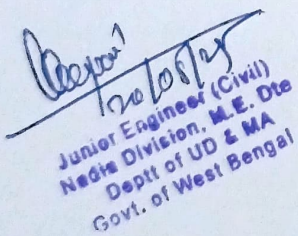 20/05/25
Junior Engineer (Civil)
Nadia Division, M.E. Dte
Deptt of UD & MA
Govt. of West Bengal